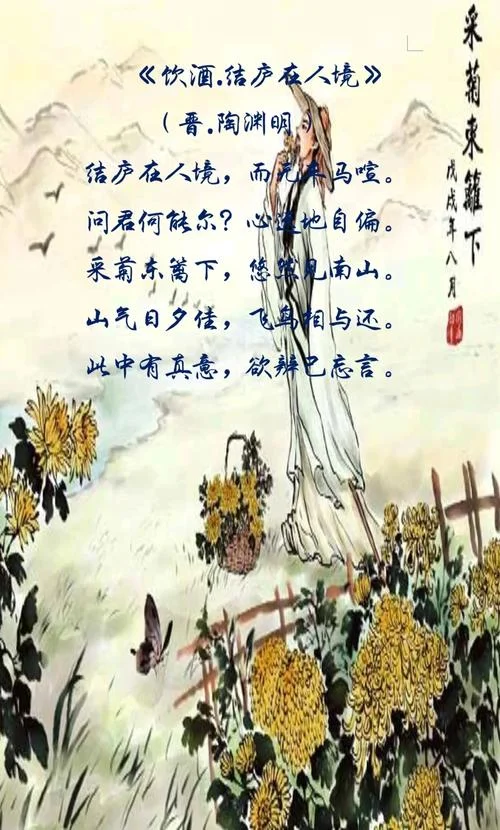 《饮酒.结庐在人境》
（晋.陶渊明）
结庐在人境，而无车马喧。
问君何能尔？心远地自偏。
采菊东篱下，悠然见南山。
山气日夕佳，飞鸟相与还。
此中有真意，欲辨已忘言。
采菊東籬下
戊戌年八月